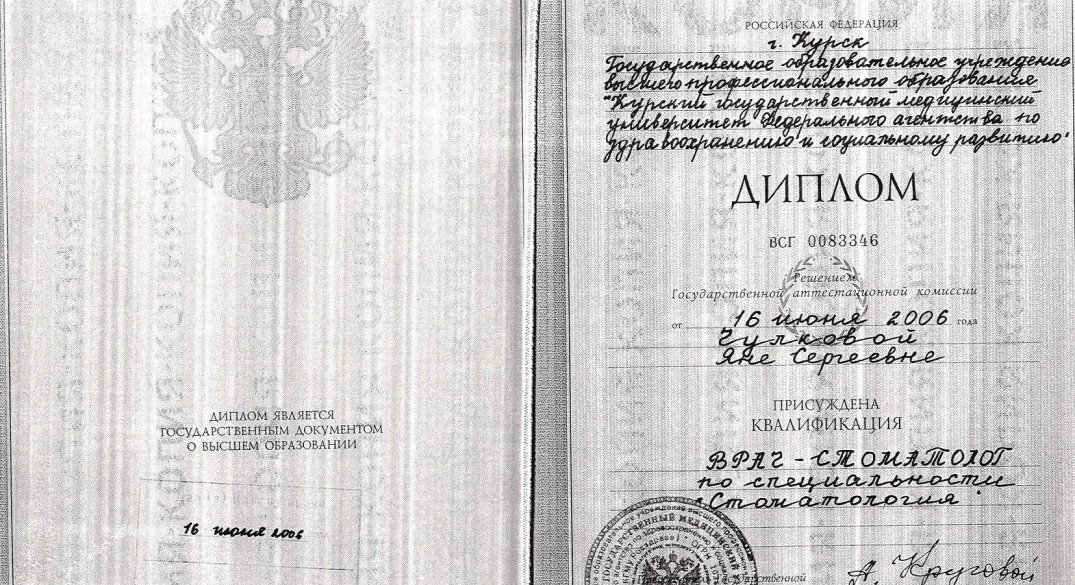 ДИПЛОМ ЯВЛЯЕТСЯ
ГОСУДАРСТВЕННЫМ ДОКУМЕНТОМ
О ВЫСШЕМ ОБРАЗОВАНИИ
16 июня 2006
РОССИЙСКАЯ ФЕДЕРАЦИЯ
г. Курск
Государственное образовательное учреждение
высшего профессионального образования
"Курский государственный медицинский
университет Федерального агентства по
здравоохранению и социальному развитию"
ДИПЛОМ
ВСГ 0083346
Решением
Государственной аттестационной комиссии
от 16 июня 2006 года
Чулковой
Яне Сергеевне
ПРИСУЖДЕНА
КВАЛИФИКАЦИЯ
ВРАЧ-СТОМАТОЛОГ
по специальности
"Стоматология"
ГОСУДАРСТВЕННЫЙ МЕДИЦИНСКИЙ
Государственной